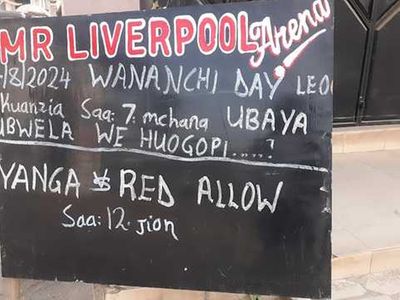 MR LIVERPOOL Arena
/8/2024 WANANCHI DAY LEO
Kuanzia Saa: 7: mchana UBAYA
UBWELA WE HUOGOPI.....?
YANGA VS RED ALLOW
Saa: 12. jion